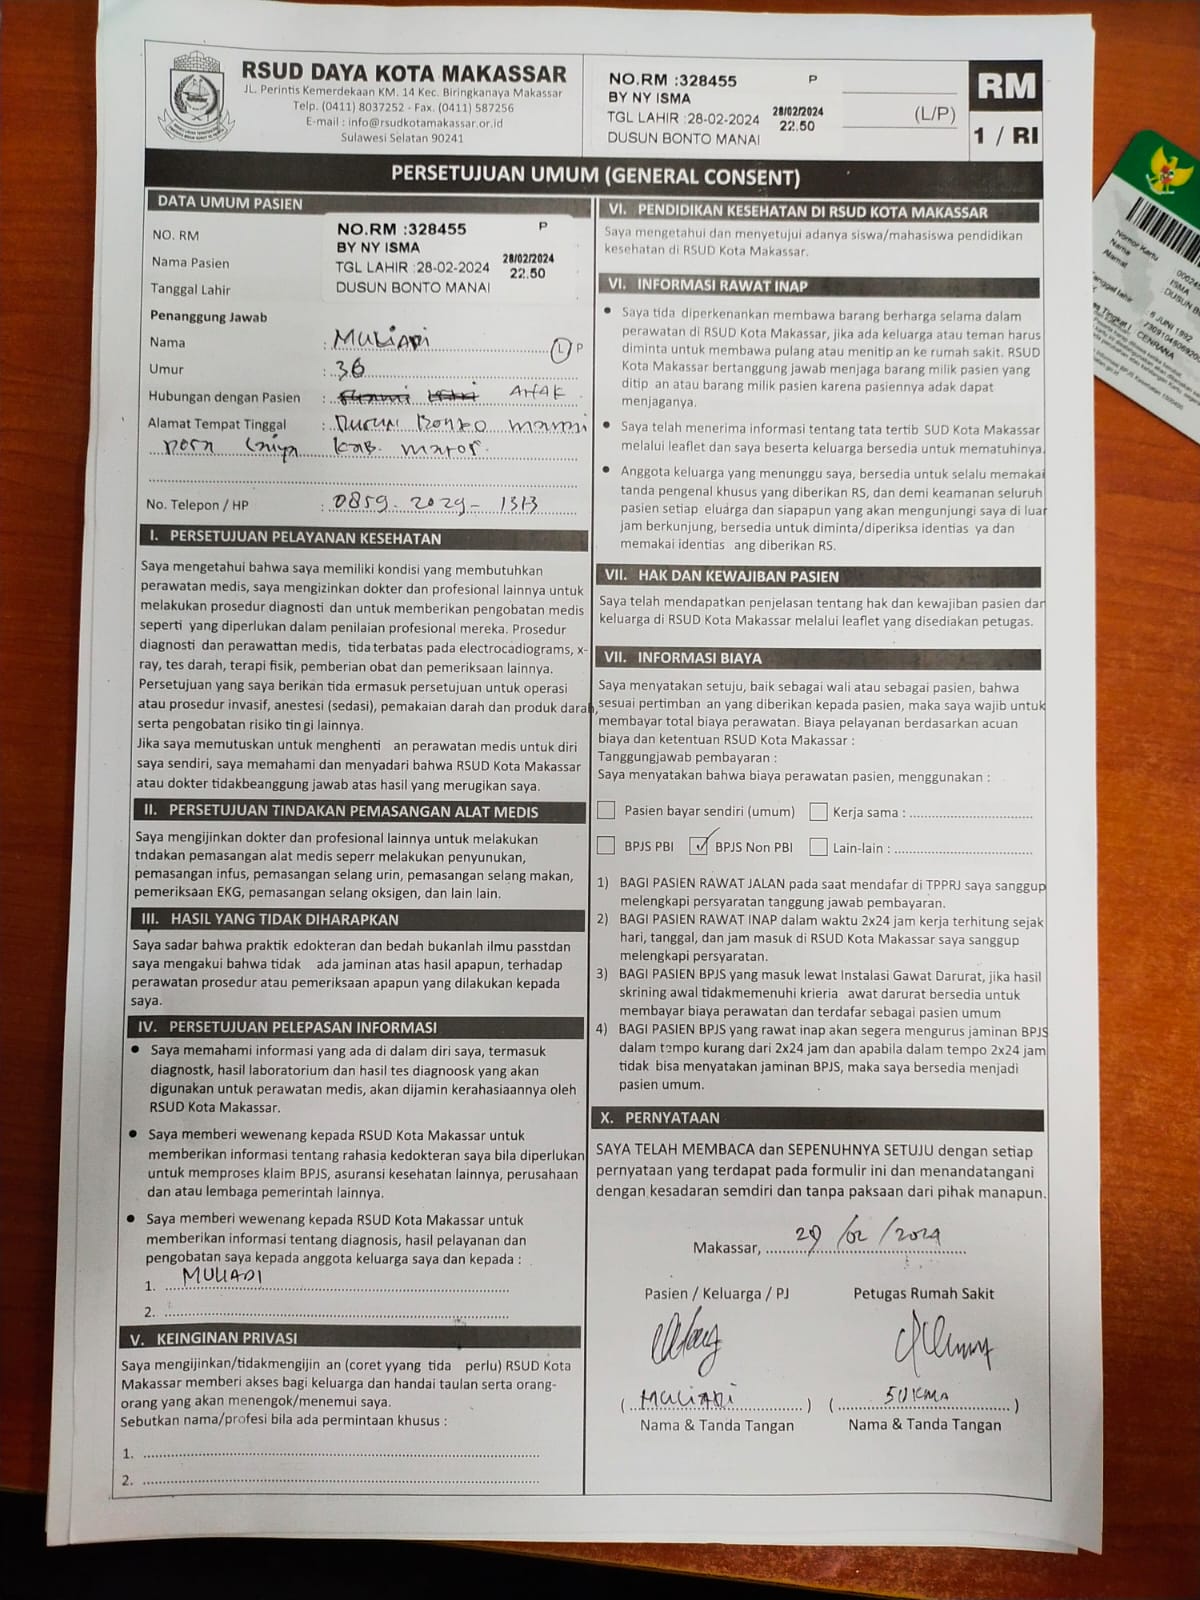 RSUD DAYA KOTA MAKASSAR
JL. Perintis Kemerdekaan KM. 14 Kec. Biringkanaya Makassar
Telp. (0411) 8037252 - Fax. (0411) 587256
E-mail : info@rsudkotamakassar.or.id
Sulawesi Selatan 90241
NO.RM :328455 P
BY NY ISMA
TGL LAHIR :28-02-2024 28/02/2024 22.50
DUSUN BONTO MANAI
(L/P)
RM
1 / RI
PERSETUJUAN UMUM (GENERAL CONSENT)
DATA UMUM PASIEN
NO. RM
Nama Pasien
Tanggal Lahir
NO.RM :328455 P
BY NY ISMA
TGL LAHIR :28-02-2024 28/02/2024 22.50
DUSUN BONTO MANAI
Penanggung Jawab
Nama : MULIADI L P
Umur : 36
Hubungan dengan Pasien : ANAK
Alamat Tempat Tinggal : Dusun Bonto manai
Kab. maros
No. Telepon / HP : 0859-2029-1313
I. PERSETUJUAN PELAYANAN KESEHATAN
Saya mengetahui bahwa saya memiliki kondisi yang membutuhkan
perawatan medis, saya mengizinkan dokter dan profesional lainnya untuk
melakukan prosedur diagnosti dan untuk memberikan pengobatan medis
seperti yang diperlukan dalam penilaian profesional mereka. Prosedur
diagnosti dan perawattan medis, tida terbatas pada electrocadiograms, x-
ray, tes darah, terapi fisik, pemberian obat dan pemeriksaan lainnya.
Persetujuan yang saya berikan tida ermasuk persetujuan untuk operasi
atau prosedur invasif, anestesi (sedasi), pemakaian darah dan produk darah,
serta pengobatan risiko tin gi lainnya.
Jika saya memutuskan untuk menghenti an perawatan medis untuk diri
saya sendiri, saya memahami dan menyadari bahwa RSUD Kota Makassar
atau dokter tidakbeanggung jawab atas hasil yang merugikan saya.
II. PERSETUJUAN TINDAKAN PEMASANGAN ALAT MEDIS
Saya mengijinkan dokter dan profesional lainnya untuk melakukan
tndakan pemasangan alat medis seperr melakukan penyunukan,
pemasangan infus, pemasangan selang urin, pemasangan selang makan,
pemeriksaan EKG, pemasangan selang oksigen, dan lain lain.
III. HASIL YANG TIDAK DIHARAPKAN
Saya sadar bahwa praktik edokteran dan bedah bukanlah ilmu passtdan
saya mengakui bahwa tidak ada jaminan atas hasil apapun, terhadap
perawatan prosedur atau pemeriksaan apapun yang dilakukan kepada
saya.
IV. PERSETUJUAN PELEPASAN INFORMASI
● Saya memahami informasi yang ada di dalam diri saya, termasuk
diagnostk, hasil laboratorium dan hasil tes diagnoosk yang akan
digunakan untuk perawatan medis, akan dijamin kerahasiaannya oleh
RSUD Kota Makassar.
● Saya memberi wewenang kepada RSUD Kota Makassar untuk
memberikan informasi tentang rahasia kedokteran saya bila diperlukan
untuk memproses klaim BPJS, asuransi kesehatan lainnya, perusahaan
dan atau lembaga pemerintah lainnya.
● Saya memberi wewenang kepada RSUD Kota Makassar untuk
memberikan informasi tentang diagnosis, hasil pelayanan dan
pengobatan saya kepada anggota keluarga saya dan kepada :
1. MULIADI
2.
V. KEINGINAN PRIVASI
Saya mengijinkan/tidakmengijin an (coret yyang tida perlu) RSUD Kota
Makassar memberi akses bagi keluarga dan handai taulan serta orang-
orang yang akan menengok/menemui saya.
Sebutkan nama/profesi bila ada permintaan khusus :
1.
2.
VI. PENDIDIKAN KESEHATAN DI RSUD KOTA MAKASSAR
Saya mengetahui dan menyetujui adanya siswa/mahasiswa pendidikan
kesehatan di RSUD Kota Makassar.
VI. INFORMASI RAWAT INAP
● Saya tida diperkenankan membawa barang berharga selama dalam
perawatan di RSUD Kota Makassar, jika ada keluarga atau teman harus
diminta untuk membawa pulang atau menitip an ke rumah sakit. RSUD
Kota Makassar bertanggung jawab menjaga barang milik pasien yang
ditip an atau barang milik pasien karena pasiennya adak dapat
menjaganya.
● Saya telah menerima informasi tentang tata tertib SUD Kota Makassar
melalui leaflet dan saya beserta keluarga bersedia untuk mematuhinya.
● Anggota keluarga yang menunggu saya, bersedia untuk selalu memakai
tanda pengenal khusus yang diberikan RS, dan demi keamanan seluruh
pasien setiap eluarga dan siapapun yang akan mengunjungi saya di luar
jam berkunjung, bersedia untuk diminta/diperiksa identias ya dan
memakai identias ang diberikan RS.
VII. HAK DAN KEWAJIBAN PASIEN
Saya telah mendapatkan penjelasan tentang hak dan kewajiban pasien dan
keluarga di RSUD Kota Makassar melalui leaflet yang disediakan petugas.
VII. INFORMASI BIAYA
Saya menyatakan setuju, baik sebagai wali atau sebagai pasien, bahwa
sesuai pertimban an yang diberikan kepada pasien, maka saya wajib untuk
membayar total biaya perawatan. Biaya pelayanan berdasarkan acuan
biaya dan ketentuan RSUD Kota Makassar :
Tanggungjawab pembayaran :
Saya menyatakan bahwa biaya perawatan pasien, menggunakan :
Pasien bayar sendiri (umum) Kerja sama :
BPJS PBI ✓ BPJS Non PBI Lain-lain :
1) BAGI PASIEN RAWAT JALAN pada saat mendafar di TPPRJ saya sanggup
melengkapi persyaratan tanggung jawab pembayaran.
2) BAGI PASIEN RAWAT INAP dalam waktu 2x24 jam kerja terhitung sejak
hari, tanggal, dan jam masuk di RSUD Kota Makassar saya sanggup
melengkapi persyaratan.
3) BAGI PASIEN BPJS yang masuk lewat Instalasi Gawat Darurat, jika hasil
skrining awal tidakmemenuhi krieria awat darurat bersedia untuk
membayar biaya perawatan dan terdafar sebagai pasien umum
4) BAGI PASIEN BPJS yang rawat inap akan segera mengurus jaminan BPJS
dalam tempo kurang dari 2x24 jam dan apabila dalam tempo 2x24 jam
tidak bisa menyatakan jaminan BPJS, maka saya bersedia menjadi
pasien umum.
X. PERNYATAAN
SAYA TELAH MEMBACA dan SEPENUHNYA SETUJU dengan setiap
pernyataan yang terdapat pada formulir ini dan menandatangani
dengan kesadaran semdiri dan tanpa paksaan dari pihak manapun.
Makassar, 29 /02 /2024
Pasien / Keluarga / PJ Petugas Rumah Sakit
( MULIADI ) ( SUKMA )
Nama & Tanda Tangan Nama & Tanda Tangan
Nomor Kartu
Nama ISMA
Alamat
6 JUNI 1992
CENRANA